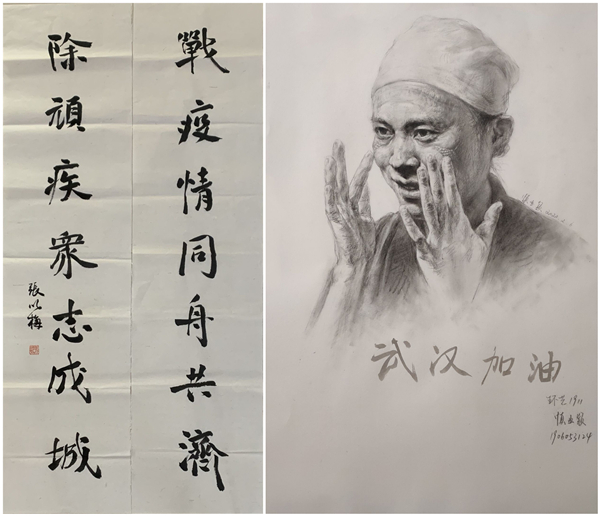 戰疫情同舟共濟
除頑疾衆志成城
張以梅
武汉加油
环艺1911
1906053124